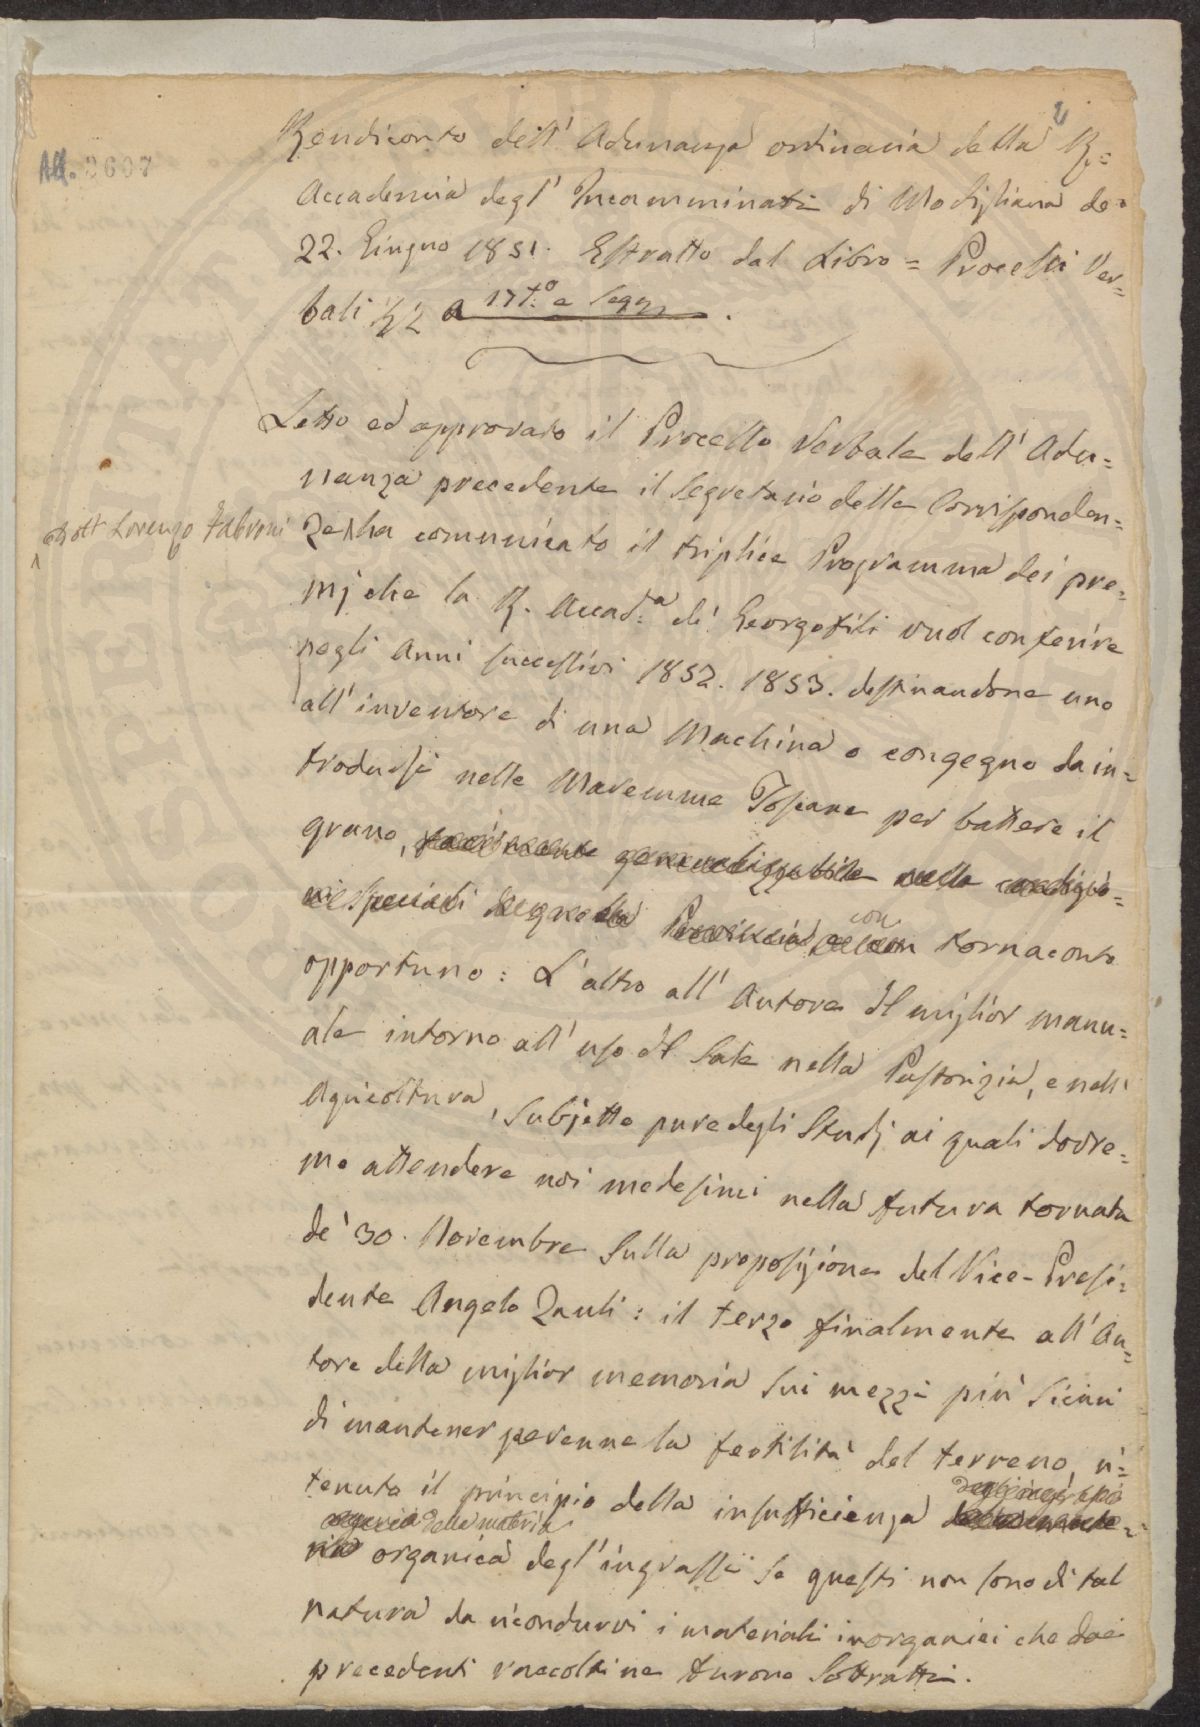 All. 2607
Rendiconto dell' Adunanza ordinaria della R.=
Accademia degl' Incamminati di Modigliana de=
22. Giugno 1851. Estratto dal Libro = Processi Ver=
bali § 2 a 17t.º e segg.
Letto ed approvato il Processo Verbale dell' Adu=
nanza precedente il Segretario delle Corrisponden=
Dott Lorenzo Fabroni
ze ha comunicato il triplice Programma dei pre=
mj che la R. Accad.a dei Georgofili vuol conferire
negli Anni successivi 1852. 1853. destinandone uno
all' inventore di una Machina o congegno da in=
trodursi nelle Maremme Toscane per battere il
grano, facilmente generalizzabile nelle condizio=
ni speciali di quella Provincia con tornaconto
opportuno: L'altro all' Autore del miglior manu=
ale intorno all' uso del Sale nella Pastorizia, e nell'
Agricoltura, Subjetto pure degli Studj ai quali dovre=
mo attendere noi medesimi nella futura tornata
de' 30. Novembre sulla proposizione del Vice-Presi=
dente Angelo Zauli: il terzo finalmente all' Au=
tore della miglior memoria sui mezzi più sicuri
di mantener perenne la fertilità del terreno, ri=
tenuto il principio della insufficienza
della materia
organica degl' ingrassi se questi non sono di tal
natura da ricondurvi i materiali inorganici che dai
precedenti raccolti ne furono sottratti.